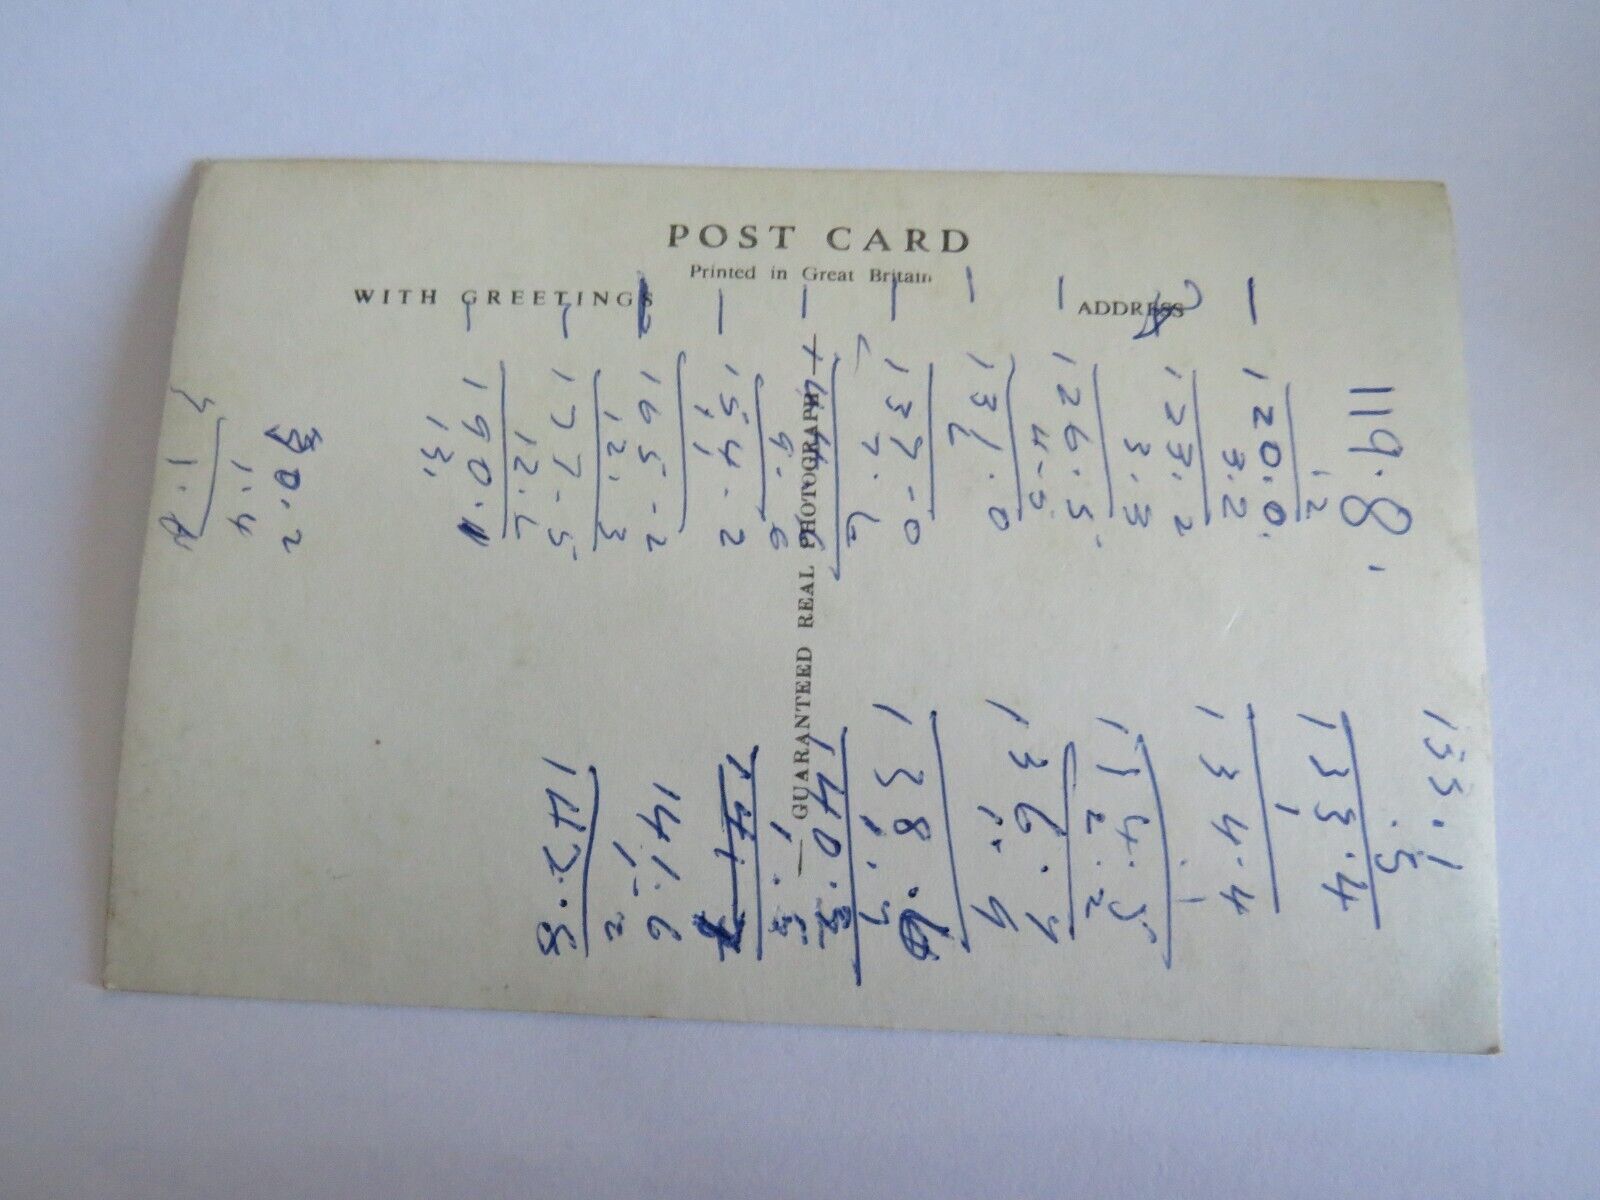 POST CARD
Printed in Great Britain
WITH GREETINGS
ADDRESS
GUARANTEED REAL PHOTOGRAPH
119.8
1.2
120.0.
3.2
123.2
3.3
126.5
4-5
131.0
6
137-0
7.6
9.6
154-2
165-2
12.3
177-5
12.6
190.1
13.
30.2
1.4
133.1
.5
133.4
1
134.4
.1
134.5
2.2
136.7
1.9
138.6
1.7
140.3
1.3
141.6
142.8